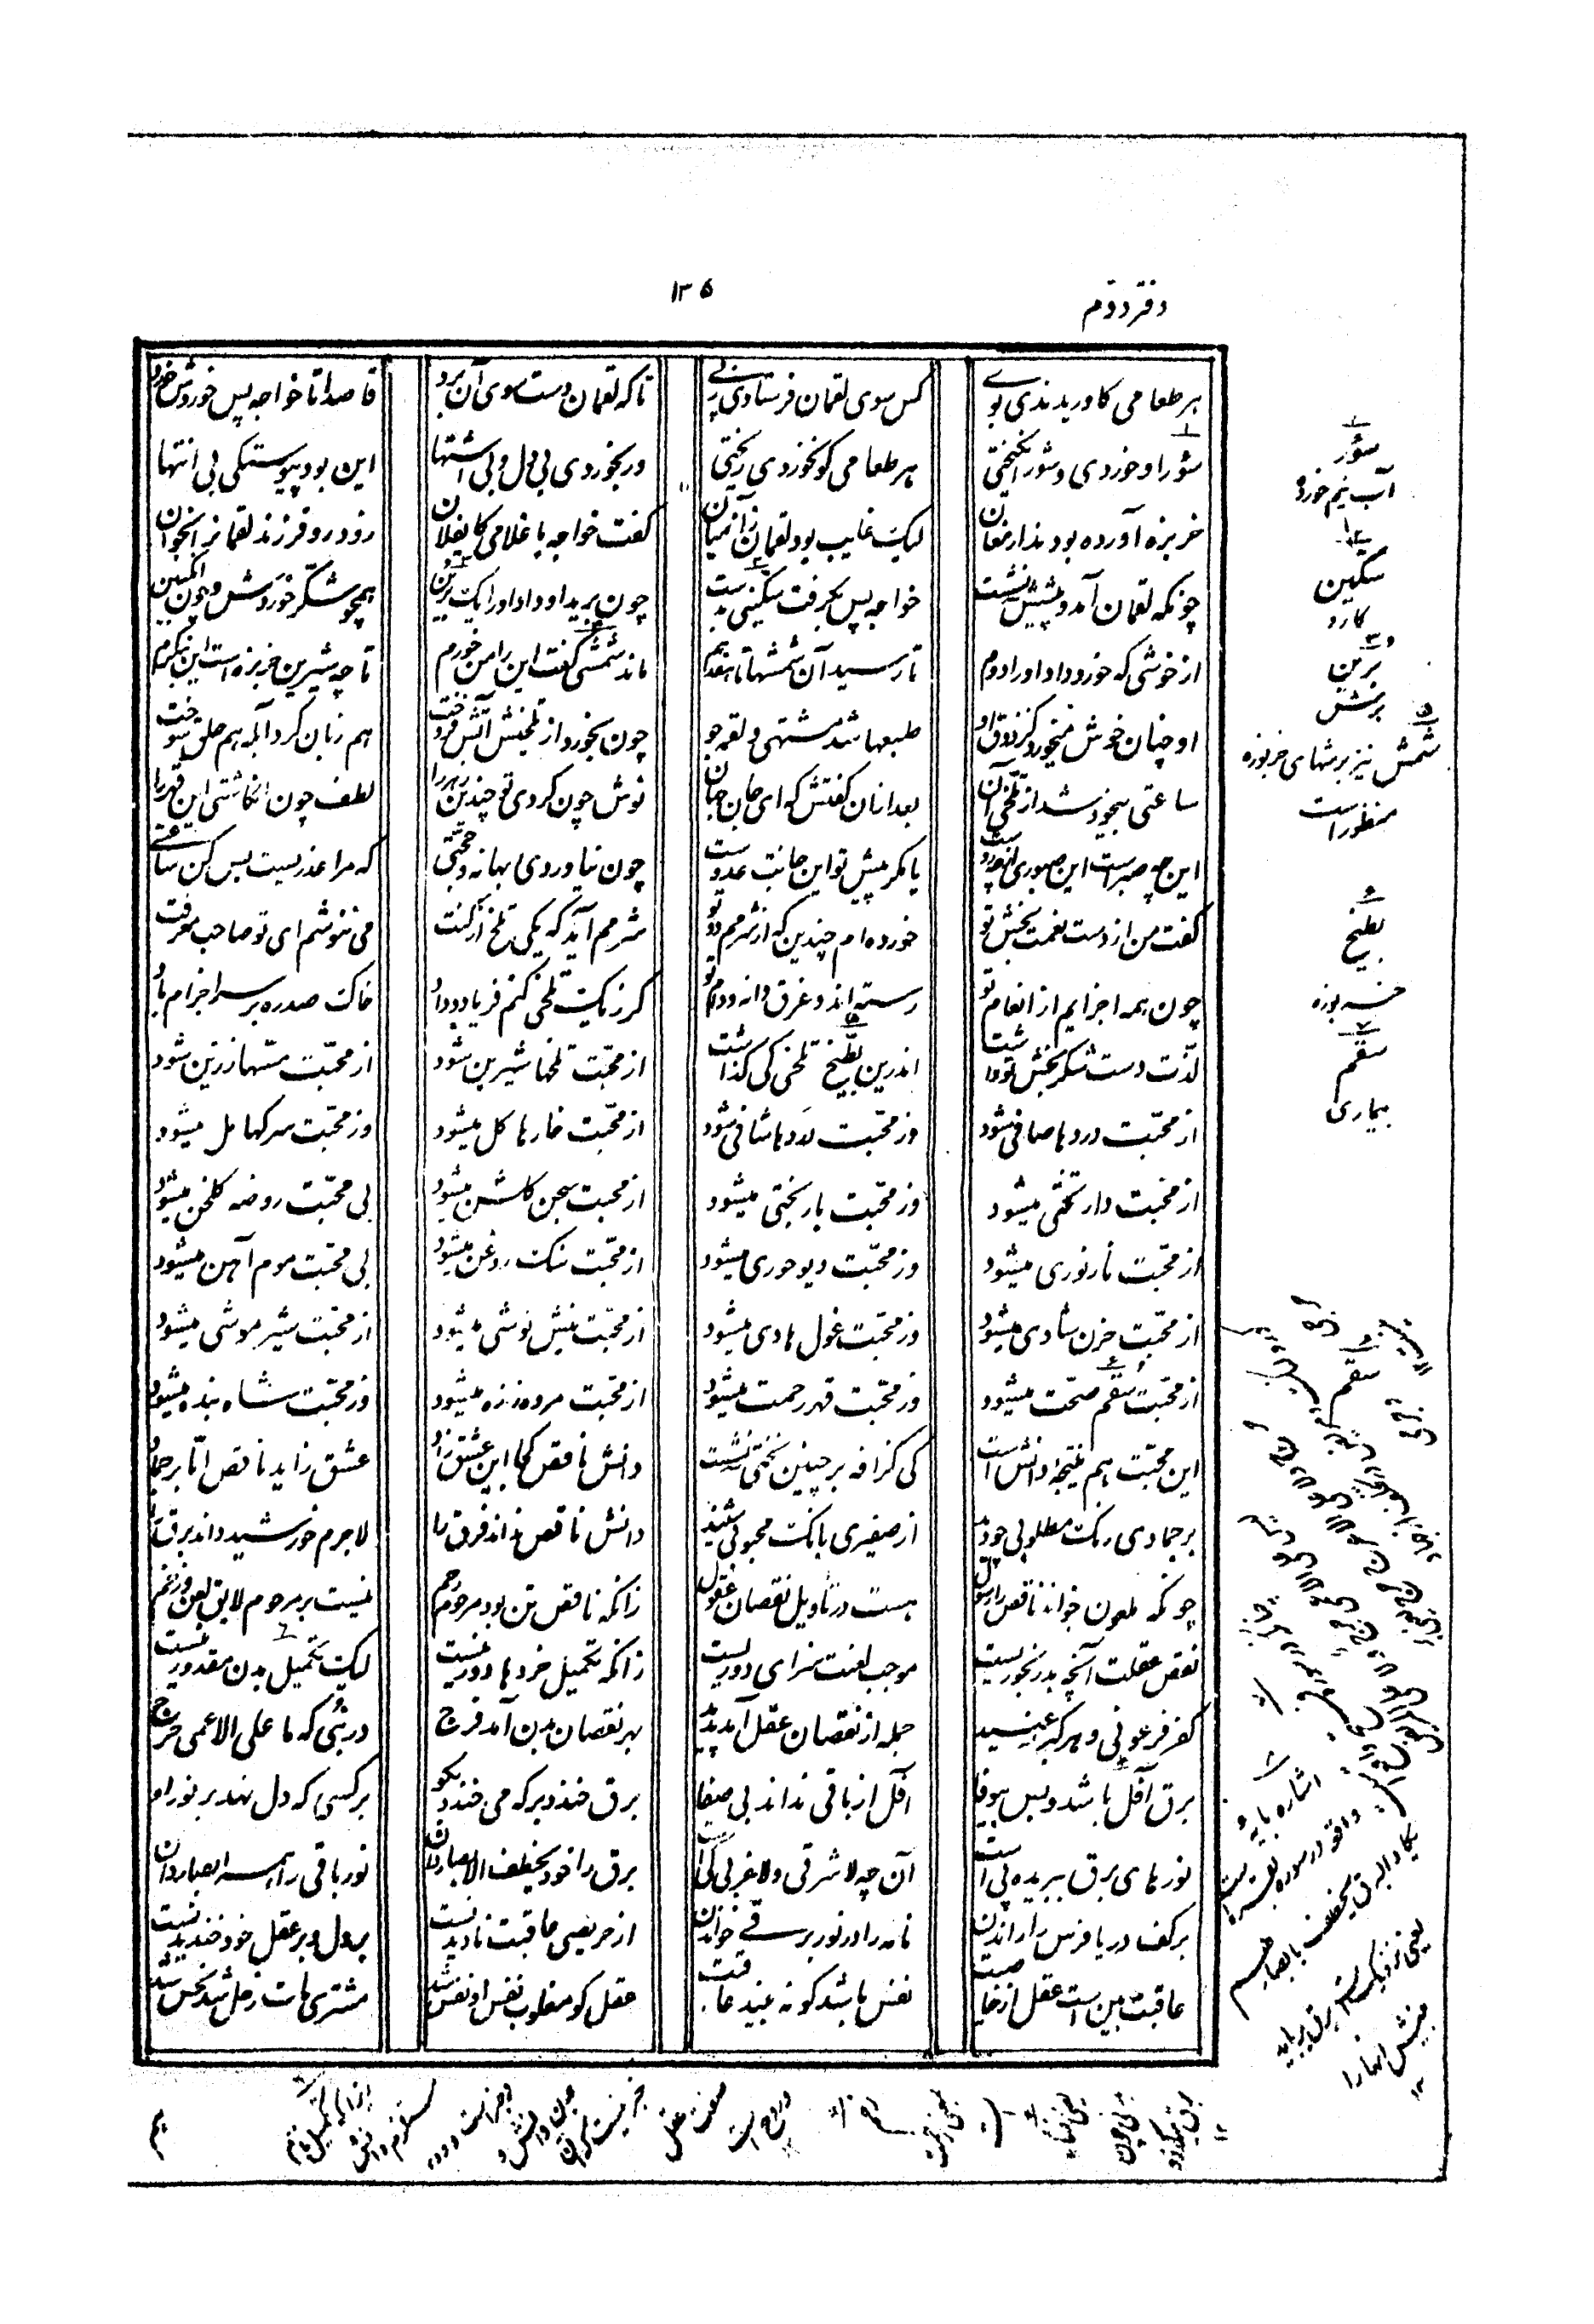 دفتر دوم
۱۳۵
هر طعامی کاوریدندی بوی کس سوی لقمان فرستادی ز پی تا که لقمان دست سوی آن برد قاصدا تا خواجه پس خوردش خورد
سؤر او خوردی و شور انگیختی هر طعامی کو نخوردی ریختی ور بخوردی بی دل و بی اشتها این بود پیوستگی بی انتها
خربزه آورده بودند ارمغان لیک غایب بود لقمان زان میان گفت خواجه با غلامی کایفلان زود رو فرزند لقمانرا بخوان
چونکه لقمان آمد و پیشش نشست خواجه پس بگرفت سکینی بدست چون برید او داد او را یک برین همچو شکر خوردش و چون انگبین
از خوشی که خورد داد او را دوم تا رسید آن شمشها تا هفدهم ماند شمشی گفت این را من خورم تا چه شیرین خربزه است این بنگرم
او چنان خوش میخورد کز ذوق او طبعها شد مشتهی و لقمه جو چون بخورد از تلخیش آتش فروخت هم زبان کرد آبله هم حلق سوخت
ساعتی بیخود شد از تلخی آن بعد ازان گفتش که ای جان جهان نوش چون کردی تو چندین زهر را لطف چون انگاشتی این قهر را
این چه صبرست این صبوری از چه روست یا مگر پیش تو این جانت عدوست چون نیاوردی بهانه و حجتی که مرا عذریست بس کن ساعتی
گفت من از دست نعمت بخش تو خورده ام چندین که از شرمم دوتو شرمم آید که یکی تلخ از کفت می ننوشم ای تو صاحب معرفت
چون همه اجزایم از انعام تو رسته اند و غرق دانه و دام تو گر ز یک تلخی کنم فریاد و داد خاک صد ره بر سر اجزام باد
لذت دست شکر بخش تو داشت اندرین بطیخ تلخی کی گذاشت از محبت تلخها شیرین شود از محبت مسها زرین شود
از محبت دردها صافی شود وز محبت دردها شافی شود از محبت خارها گل میشود وز محبت سرکها مل میشود
از محبت دار تختی میشود وز محبت بار بختی میشود از محبت سجن گلشن میشود بی محبت روضه گلخن میشود
از محبت نار نوری میشود وز محبت دیو حوری میشود از محبت سنک روغن میشود بی محبت موم آهن میشود
از محبت حزن شادی میشود وز محبت غول هادی میشود از محبت نیش نوشی میشود از محبت شیر موشی میشود
از محبت سقم صحت میشود وز محبت قهر رحمت میشود از محبت مرده زنده میشود وز محبت شاه بنده میشود
این محبت هم نتیجه دانش است کی گزافه بر چنین تختی نشست دانش ناقص کجا این عشق زاد عشق زاید ناقص اما بر جماد
بر جمادی رنک مطلوبی چو دید از صفیری بانک محبوبی شنید دانش ناقص نداند فرق را لاجرم خورشید داند برق را
چونکه ملعون خواند ناقص را رسول هست در تأویل نقصان عقول زانکه ناقص تن بود مرحوم رحم نیست بر مرحوم لایق لعن و زخم
نقص عقلست آنچه بد رنجوریست موجب لعنت سزای دوریست زانکه تکمیل خردها دور نیست لیک تکمیل بدن مقدور نیست
کفر فرعونی و هر گبر عنید جمله از نقصان عقل آمد پدید بهر نقصان بدن آمد فرج در نبی که ما علی الاعمی حرج
برق آفل باشد و بس بیوفا آفل از باقی نداند بی صفا برق خندد بر که می خندد بگو بر کسی که دل نهد بر نور او
نورهای برق ببریده پی است آن چه لا شرقی و لا غربی کی است برق را خود یخطف الابصار دان نور باقی را همه ابصار دان
بر کف دریا فرس را راندن نامه را در نور برقی خواندن از حریصی عاقبت نادیدنست بر دل و بر عقل خود خندیدنست
عاقبت بین است عقل از خاصیت نفس باشد کو نه بیند عاقبت عقل کو مغلوب نفس او نفس شد مشتری مات زحل شد نحس شد
۱
سؤر
آب نیم خورده
۲
سکین
کارد
۳
برین
برش
۵
شمش نیز برشهای خربوزه
منظور است
۶
بطیخ
خربوزه
۷
سقم
بیماری
اشاره بآیه
واقع در سوره بقره است
یکاد البرق یخطف بابصارهم
یعنی نزدیکست برق برباید
بینش آنها را